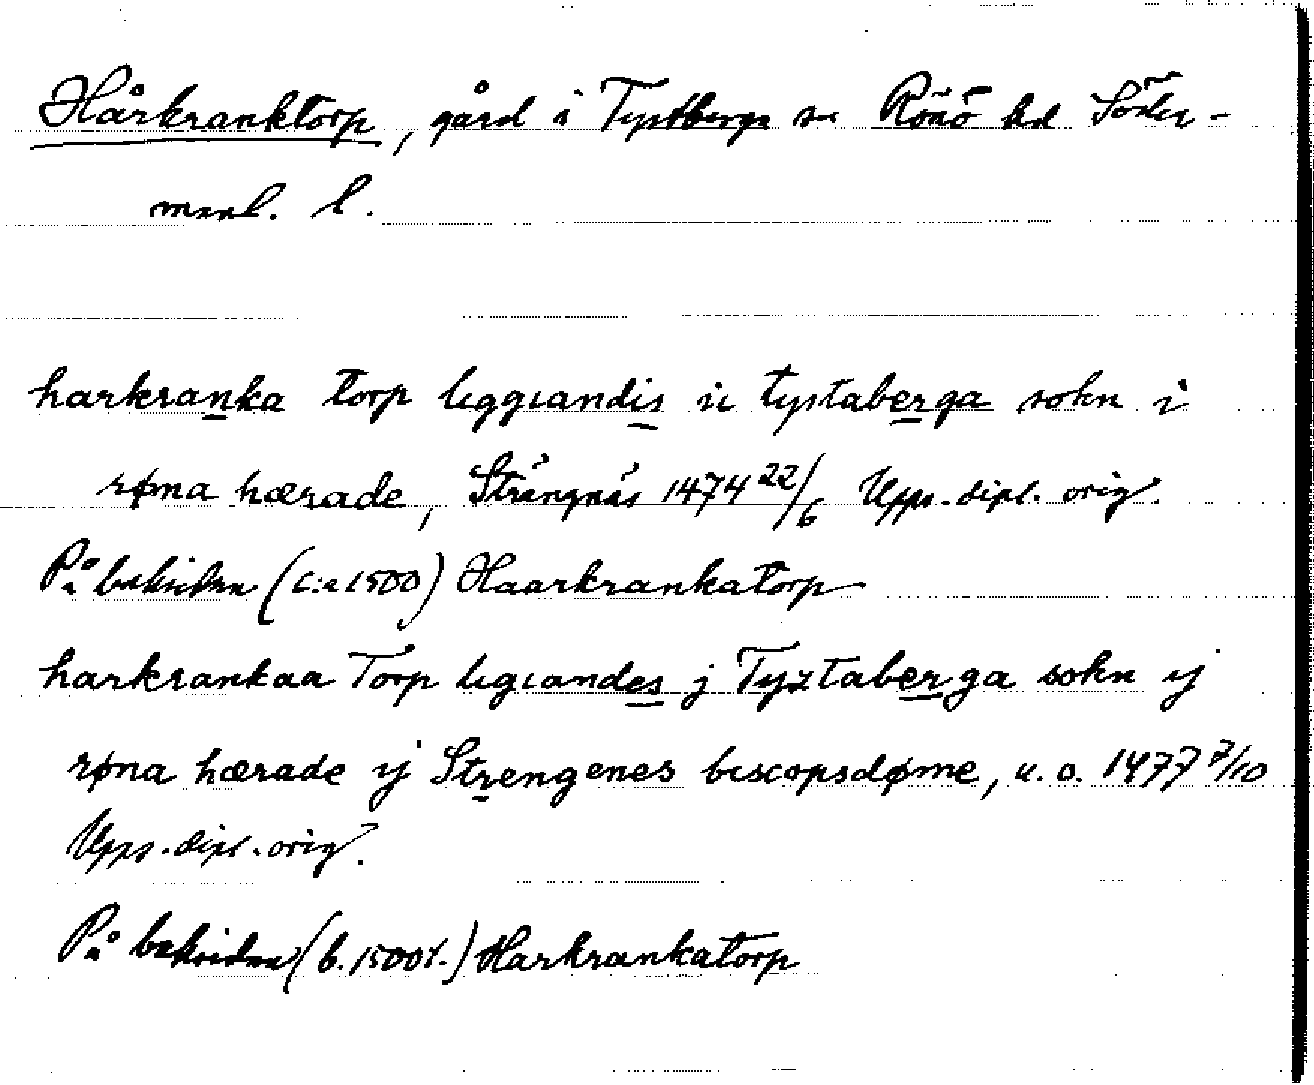 Hårkranktorp, gård i Tystberga sn Rönö hd Söder-
manl. l.
harkranka torp liggiandis ii tystaberga sokn i
røna hærade, Strängnäs 1474 22/6 Upps. dipl. orig.
På baksidan (c:a 1500) Haarkrankatorp
harkrankaa Torp ligiandes j Tyztaberga sokn ij
røna hærade ij Strengenes biscopsdøme, u. o. 1477 7/10
Upps. dipl. orig.
På baksidan (b. 1500t.) Harkrankatorp